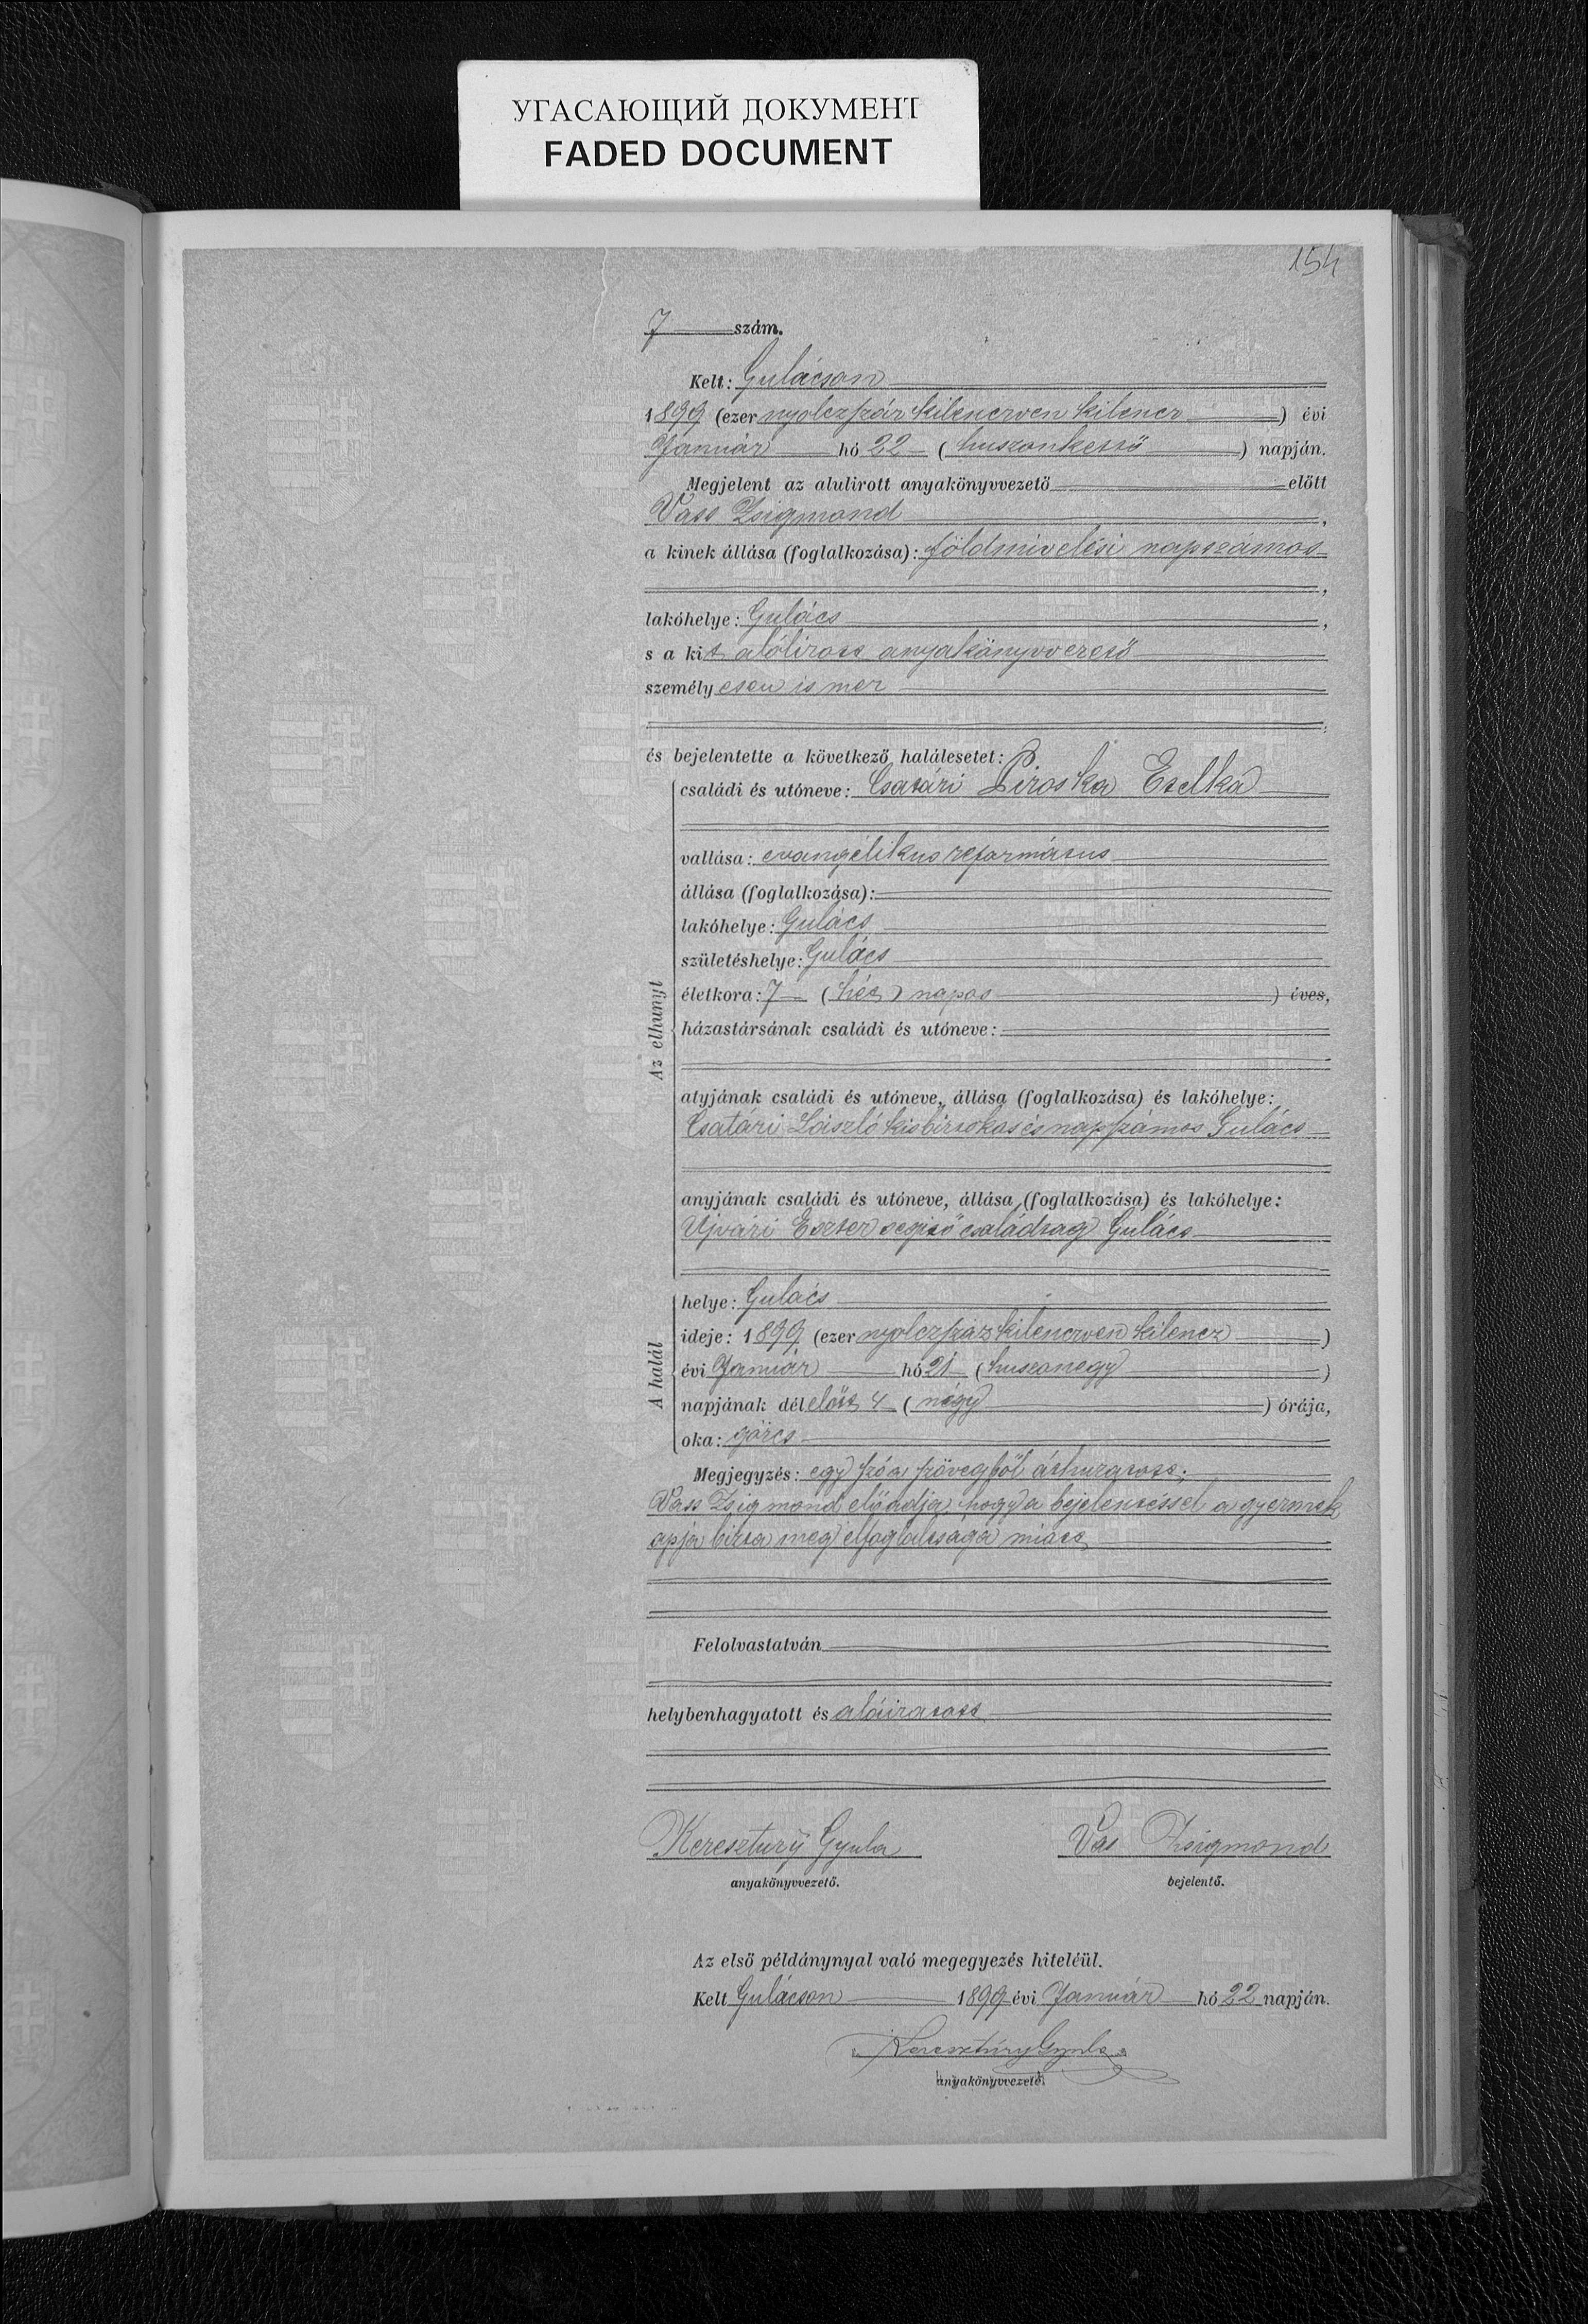 УГАСАЮЩИЙ ДОКУМЕНТ
FADED DOCUMENT
154
7 szám.
Kelt: Gulácson
1899 (ezer nyolczszáz kilenczven kilencz ) évi
Január hó 22 ( huszonkettő ) napján.
Megjelent az alulirott anyakönyvvezető előtt
Vass Zsigmond ,
a kinek állása (foglalkozása): földmivelési napszámos
,
lakóhelye: Gulács ,
s a kit alólirott anyakönyvvezető
személyesen ismer
,
és bejelentette a következő halálesetet:
családi és utóneve: Csatári Piroska Etelka
vallása: evangélikus református
állása (foglalkozása):
lakóhelye: Gulács
születéshelye: Gulács
életkora: 7 ( hét ) napos ) éves,
házastársának családi és utóneve:
Az elhunyt
atyjának családi és utóneve, állása (foglalkozása) és lakóhelye:
Csatári László kisbirtokos és napszámos Gulács
anyjának családi és utóneve, állása (foglalkozása) és lakóhelye:
Ujvári Eszter segitő családtag Gulács
helye: Gulács
ideje: 1899 (ezer nyolczszáz kilenczven kilencz )
évi Január hó 21 ( huszonegy )
A halál
napjának délelőtt 4 ( négy ) órája,
oka: görcs
Megjegyzés: egy szó a szövegből áthuzatott;
Vass Zsigmond előadja, hogy a bejelentéssel a gyermek
apja bizta meg elfoglaltsága miatt
Felolvastatván
helybenhagyatott és aláiratott
Keresztury Gyula Vas Zsigmond
anyakönyvvezető. bejelentő.
Az első példánynyal való megegyezés hiteléül.
Kelt Gulácson 1899 évi Január hó 22 napján.
Keresztúry Gyula
anyakönyvvezető.